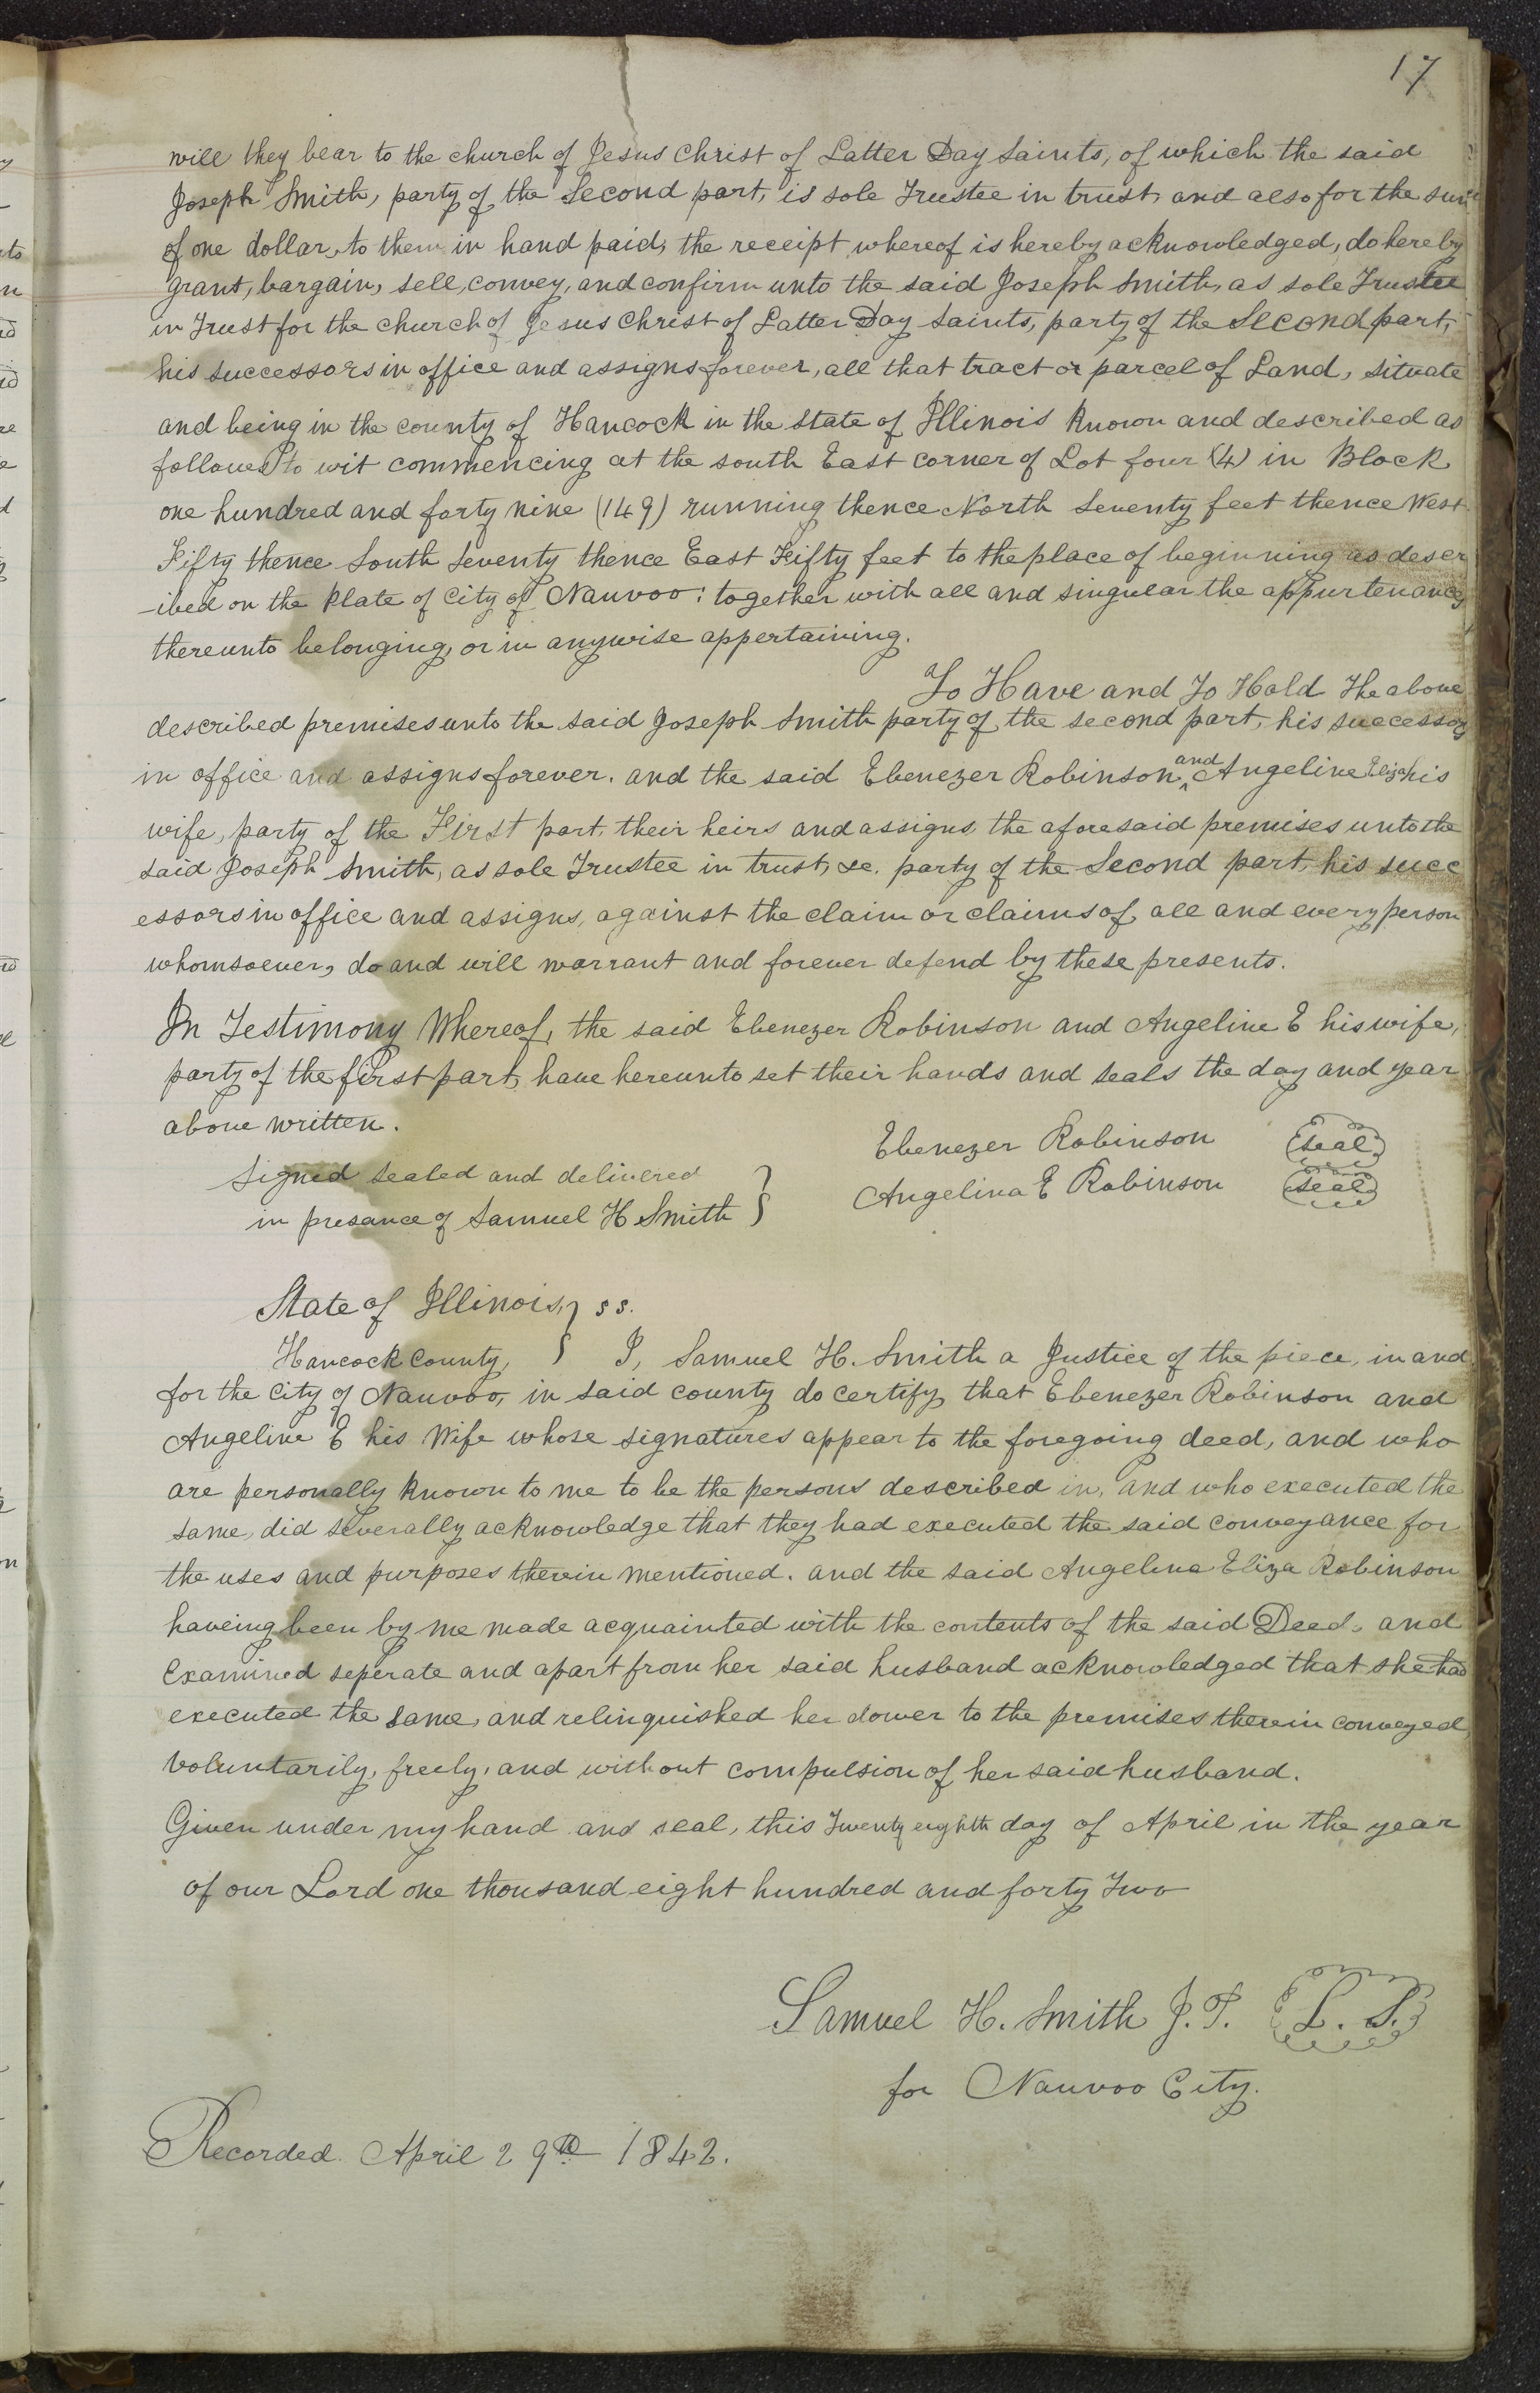 17
will they bear to the church of Jesus Christ of Latter Day Saints, of which the said
Joseph Smith, party of the Second part, is sole Trustee in trust, and also for the sum
of one dollar, to them in hand paid, the receipt whereof is hereby acknowledged, do hereby
grant, bargain, sell, convey, and confirm unto the said Joseph Smith, as sole Trustee
in Trust for the church of Jesus Christ of Latter Day Saints, party of the Second part,
his successors in office and assigns forever, all that tract or parcel of Land, situate
and being in the county of Hancock in the state of Illinois known and described as
follows to wit commencing at the south East corner of Lot four (4) in Block
one hundred and forty nine (149) running thence North Seventy feet thence West
Fifty thence South Seventy thence East Fifty feet to the place of beginning as descr
-ibed on the Plate of City of Nauvoo: together with all and singular the appurtenances
thereunto belonging, or in anywise appertaining.
To Have and To Hold The above
described premises unto the said Joseph Smith party of the second part, his successors
in office and assigns forever. and the said Ebenezer Robinson, and Angeline Eliza his
wife, party of the First part, their heirs and assigns, the aforesaid premises unto the
said Joseph Smith, as sole Trustee in trust, &c. party of the Second part, his succ
essors in office and assigns, against the claim or claims of, all and every person
whomsoever, do and will warrant and forever defend by these presents.
In Testimony Whereof, the said Ebenezer Robinson and Angeline E his wife,
party of the first part, have hereunto set their hands and seals the day and year
above written.
Ebenezer Robinson (seal)
Signed sealed and delivered }
Angelina E Robinson (seal)
in presance of Samuel H Smith }
State of Illinois, } ss.
Hancock County, } I, Samuel H. Smith a Justice of the piece, in and
for the City of Nauvoo, in said county do certify, that Ebenezer Robinson and
Angeline E his Wife whose signatures appear to the foregoing deed, and who
are personally known to me to be the persons described in, and who executed the
same, did severally acknowledge that they had executed the said conveyance for
the uses and purposes therein mentioned. and the said Angelina Eliza Robinson
haveing been by me made acquainted with the contents of the said Deed, and
Examined seperate and apart from her said husband acknowledged that she had
executed the same, and relinquished her dower to the premises therein conveyed,
Voluntarily, freely, and without compulsion of her said husband.
Given under my hand and seal, this Twenty eighth day of April in the year
of our Lord one thousand eight hundred and forty Two
Samuel H. Smith J.P. (L. S.)
for Nauvoo City.
Recorded April 29th 1842.